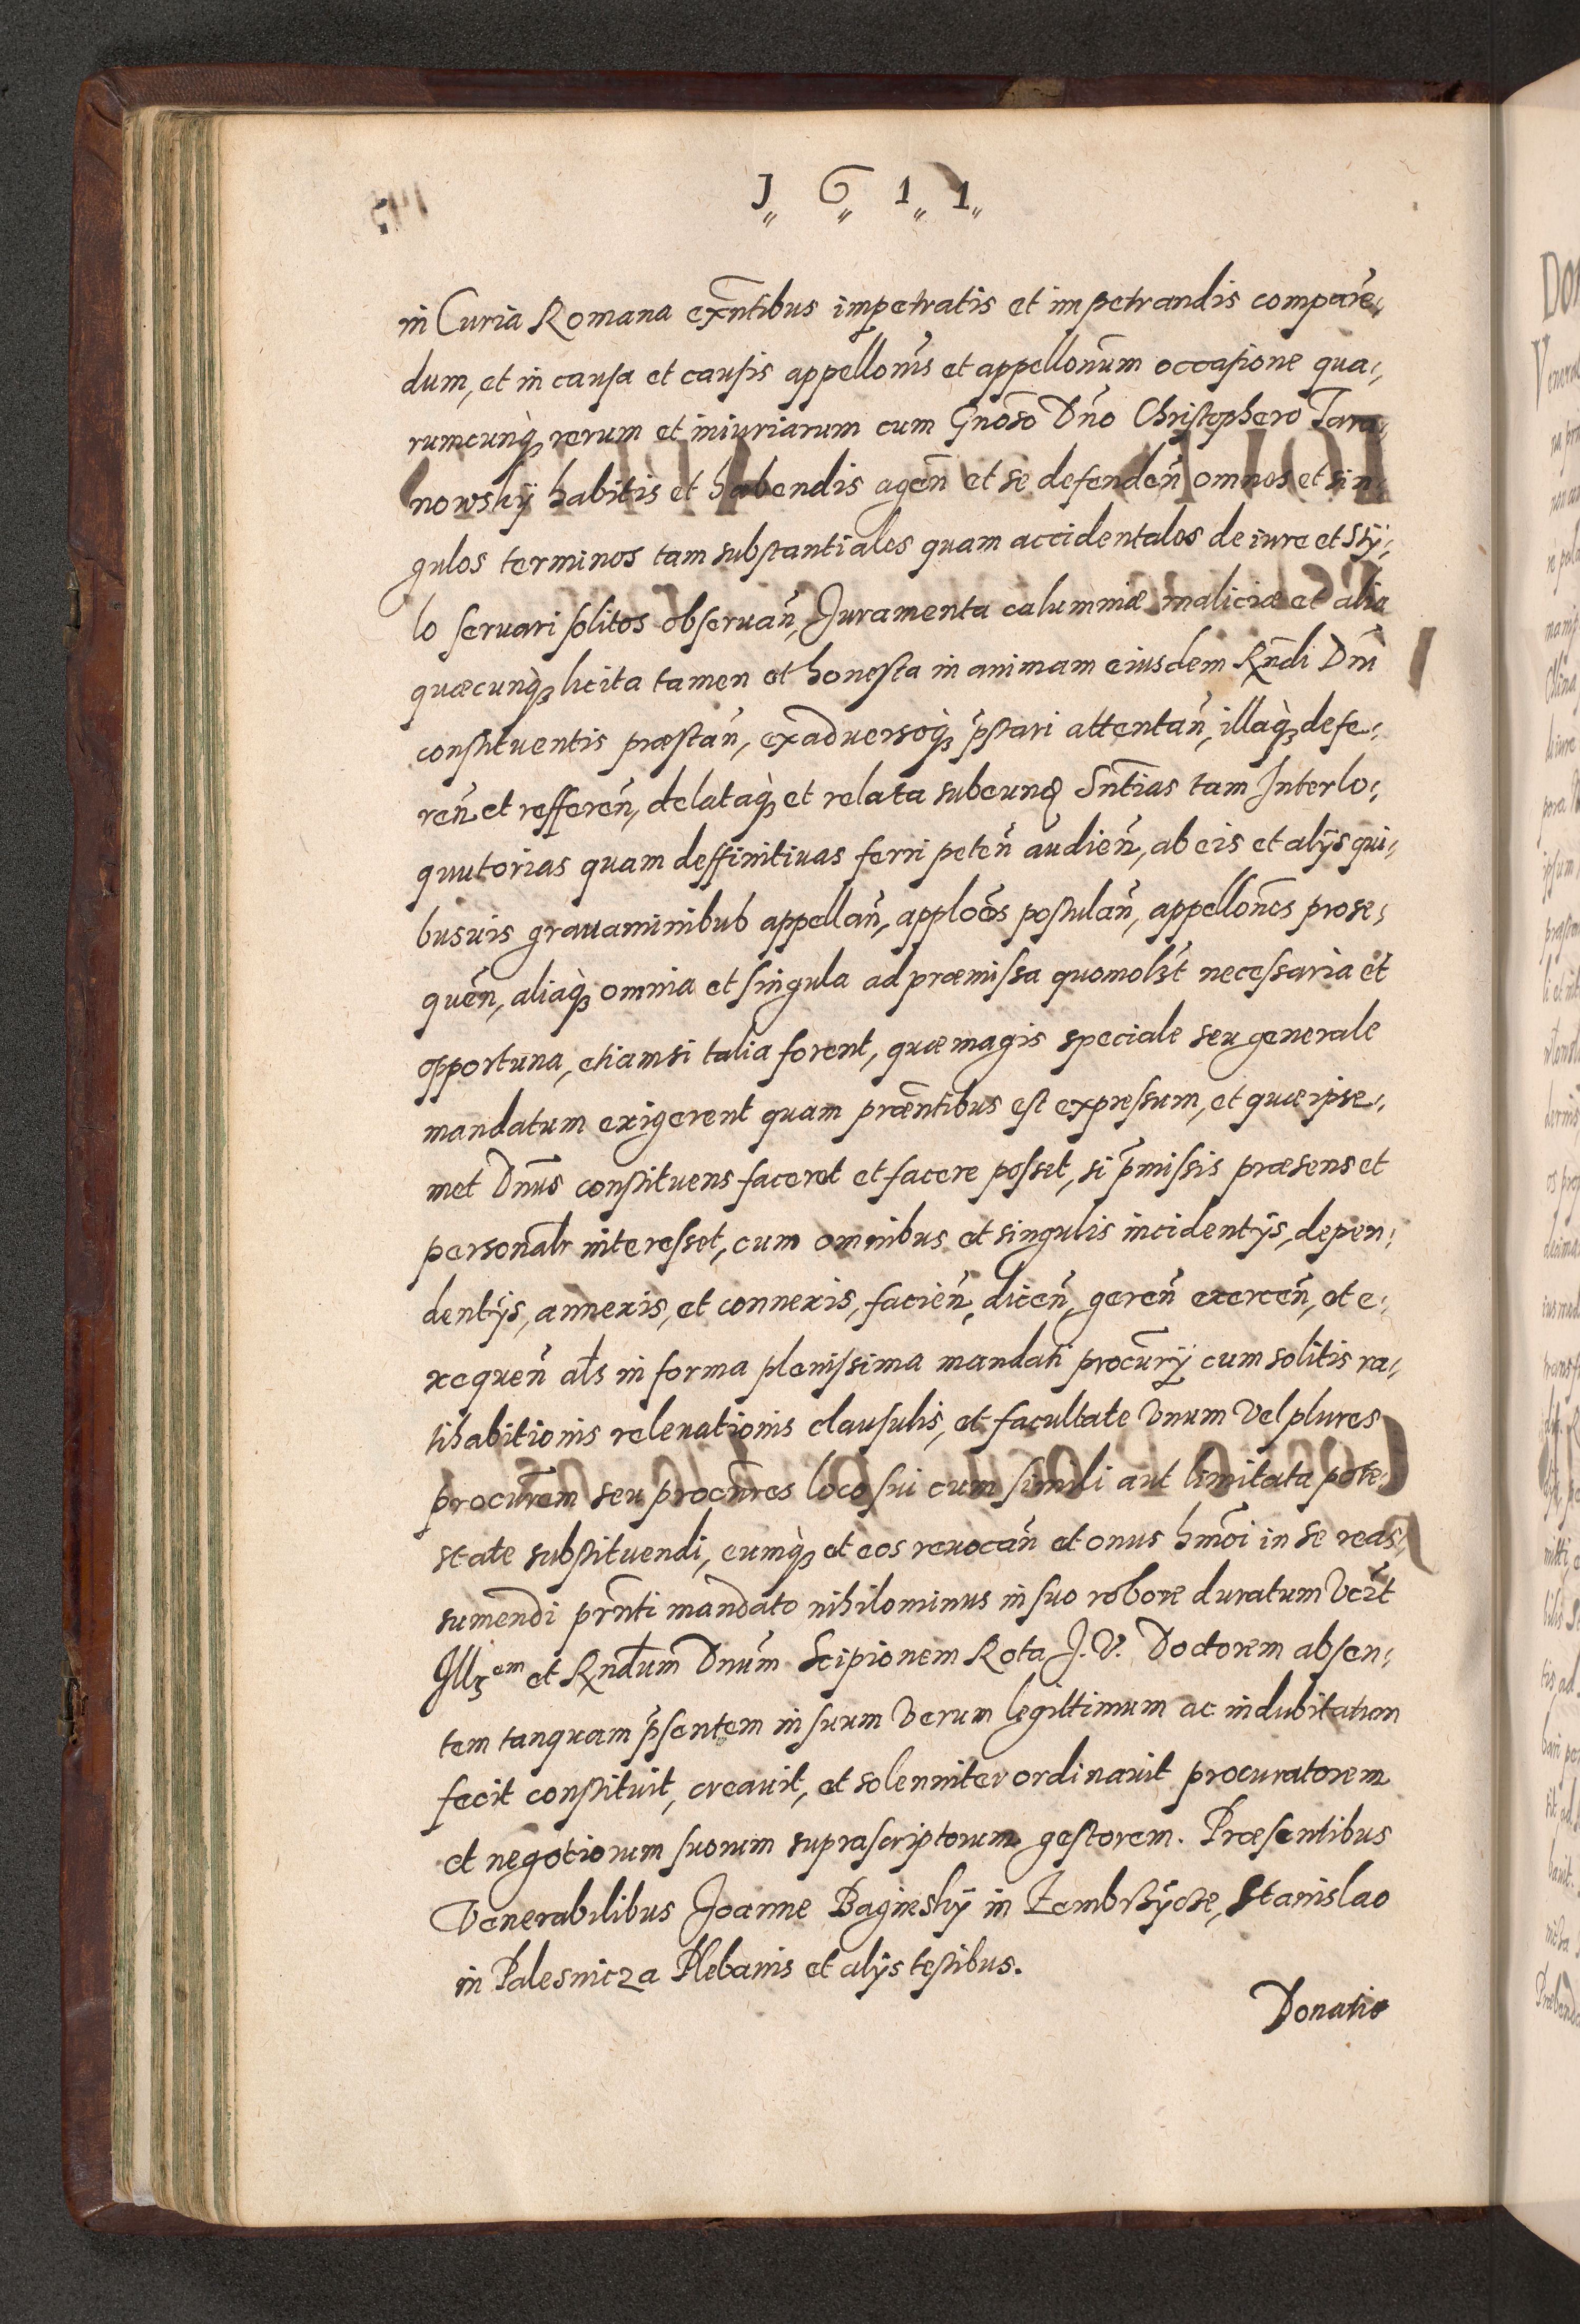 J„ 6„ 1„ 1„
in Curia Romana exñtibus impetratis et impetrandis compare„
dum, et in causa et causis appellonis et appellonum occasione qua„
rumcunq, rerum et iniuriarum cum Gnoso Dño Christophero Tara„
nowskÿ habitis et habendis ageñ et se defendeñ omnes et sin„
gulos terminos tam substantiales quam accidentales de iure et stÿ„
lo seruari solitos obseruañ, Juramenta calumniæ maliciæ et alia
quæcunq, licita tamen et honesta in animam eiusdem Rñdi Dñi
constituentis præstañ, ex aduersoq, p̃stari attentañ, illaq, defe„
reñ et reffereñ, delataq, et relata subeund Sñtias tam Interlo„
quutorias quam deffinitiuas ferri peteñ audieñ, ab eis et alÿs qui„
busuis grauaminibub appellañ, apploẽs postulañ, appellones prose„
queñ, aliaq, omnia et singula ad præmissa quomolzt necessaria et
opportuna, etiam si talia forent, quæ magis speciale seu generale
mandatum exigerent quam præñtibus est expressum, et quæ ipse„
met Dñus constituens faceret et facere posset, si p̃missis præsens et
personalr interesset, cum omnibus et singulis incidentÿs, depen„
dentÿs, annexis, et connexis, facieñ, diceñ, gereñ exerceñ, et e„
xequeñ als in forma plenissima mandati procurÿ cum solitis ra„
tihabitionis releuationis clausulis, et facultate Vnum Vel plures
procurem seu procures loco sui cum simili aut limitata pote„
state substituendi, eumq, et eos reuocañ et onus hmõi in se reas„
sumendi prñti mandato nihilominus in suo robore duratum Vczt
Illrem et Rñdum Dñum Scipionem Rota J. V. Doctorem absen„
tem tanquam p̃sentem in suum Verum legittimum ac indubitatum
fecit constituit, creauit, et solenniter ordinauit procuratorem
et negotiorum suorum suprascriptorum gestorem. Præsentibus
Venerabilibus Joanne Baginskÿ in Zembrzÿcze, Stanislao
in Palesnicza Plebanis et alÿs testibus.
Donatio